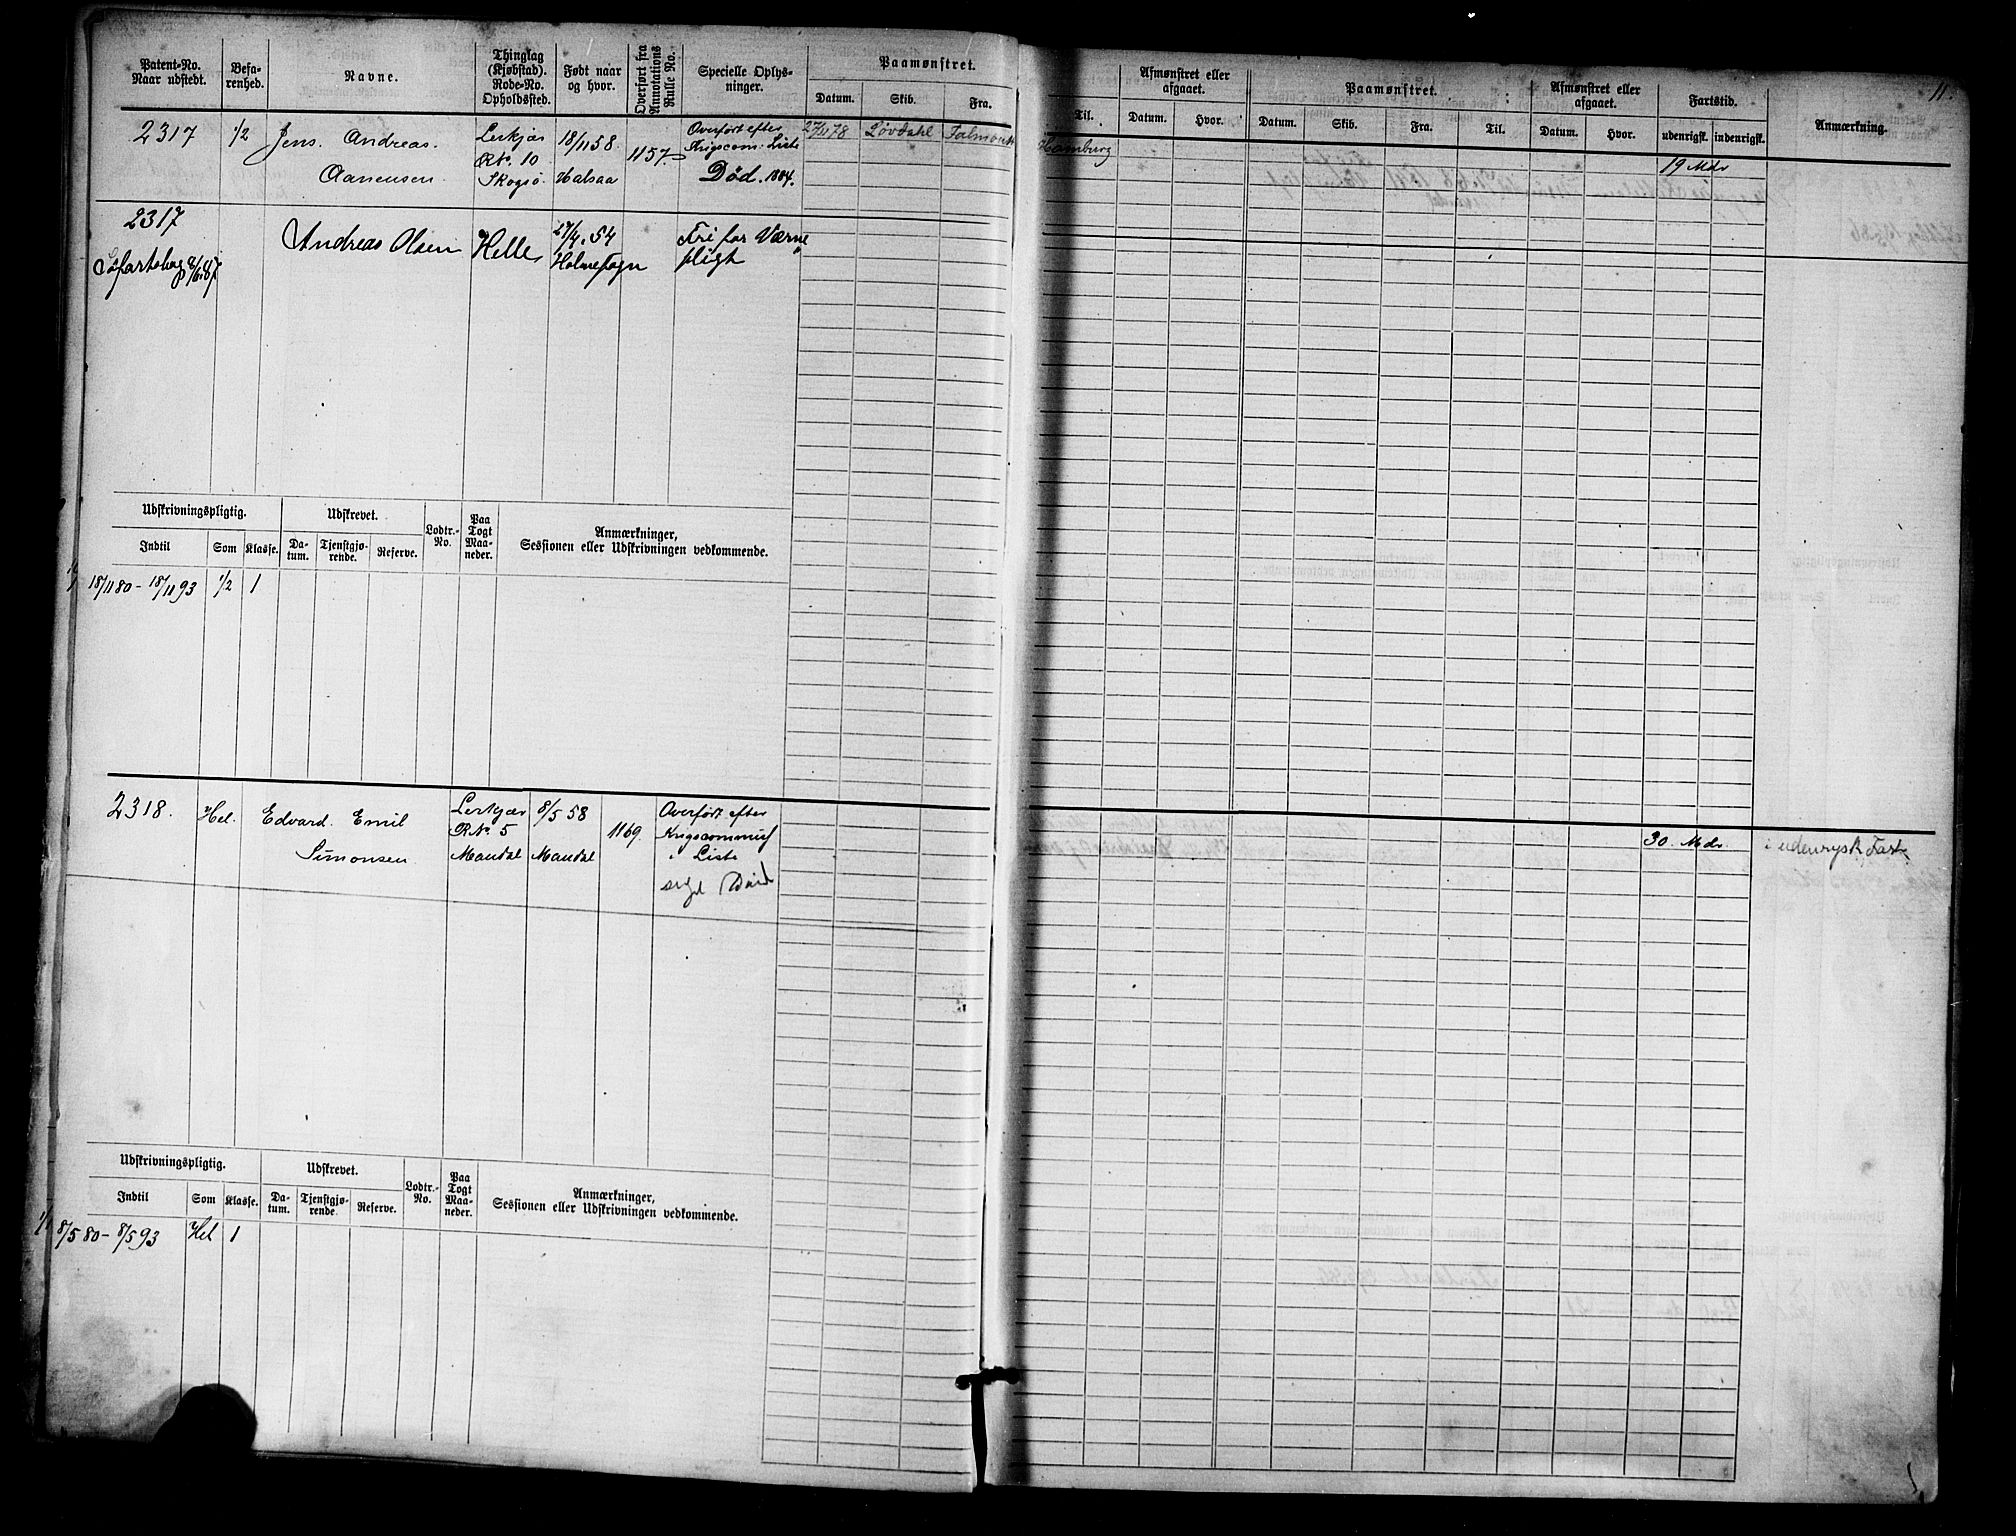 11.
Patent-No. Naar udstedt.
Befarenhed.
Navne.
Thinglag (Kjøbstad). Rode-No. Opholdssted.
Født naar og hvor.
Overført fra Annotations Rulle No.
Specielle Oplysninger.
Paamønstret.
Datum. Skib. Fra. Til.
Afmønstret eller afgaaet.
Datum. Hvor.
Paamønstret.
Datum. Skib. Fra. Til.
Afmønstret eller afgaaet.
Datum. Hvor.
Fartstid.
udenrigsk. indenrigsk.
Anmærkning.
2317 1/2 Jens. Andreas. Lerkjær 18/11 58. 1157 Overført efter 27/11 78 Løvdahl Falmouth Hamburg
Aanensen RNo. 10 Halsaa Krigscom. Liste 19 Mdr
Skogsø. Død. 1884.
2317 Andreas Olsen Helle 27/4. 54 Fri for Værne
Søfartsbog 8/6 87 Holmesogn pligt
Udskrivningspligtig. Udskrevet. Lodtr.-No. Paa Togt Maaneder. Anmærkninger,
Sessionen eller Udskrivningen vedkommende.
Indtil Som Klasse. Datum. Tjenstgjørende. Reserve.
18/11 80 - 18/11 93 1/2 1
2318. Hel. Edvard. Emil Lerkjær 8/5 58 1169. Overført efter
Simonsen RNo. 5 Mandal Krigscommiss 30. Mdr. i udenrysk Fart
Mandal Liste
Udskrivningspligtig. Udskrevet. Lodtr.-No. Paa Togt Maaneder. Anmærkninger,
Sessionen eller Udskrivningen vedkommende.
Indtil Som Klasse. Datum. Tjenstgjørende. Reserve.
8/5 80 - 8/5 93 Hel 1